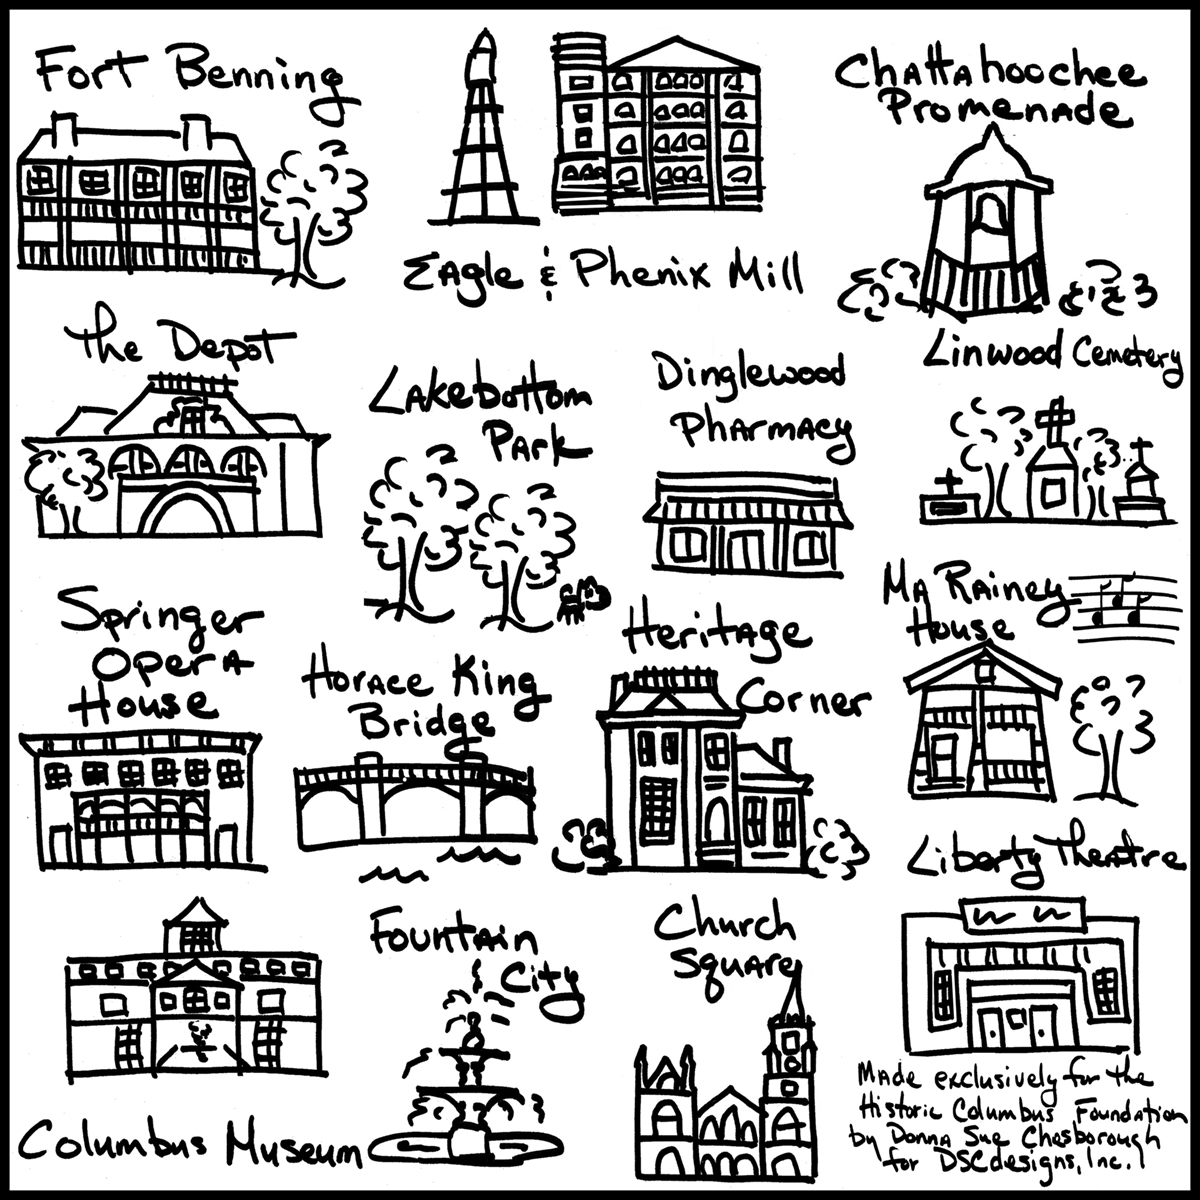 Fort Benning
Eagle & Phenix Mill
Chattahoochee
Promenade
The Depot
Lakebottom
Park
Dinglewood
Pharmacy
Linwood Cemetery
Springer
Opera
House
Horace King
Bridge
Heritage
Corner
Ma Rainey
House
Liberty Theatre
Columbus Museum
Fountain
City
Church
Square
Made exclusively for the
Historic Columbus Foundation
by Donna Sue Chesborough
for DSCdesigns, Inc.